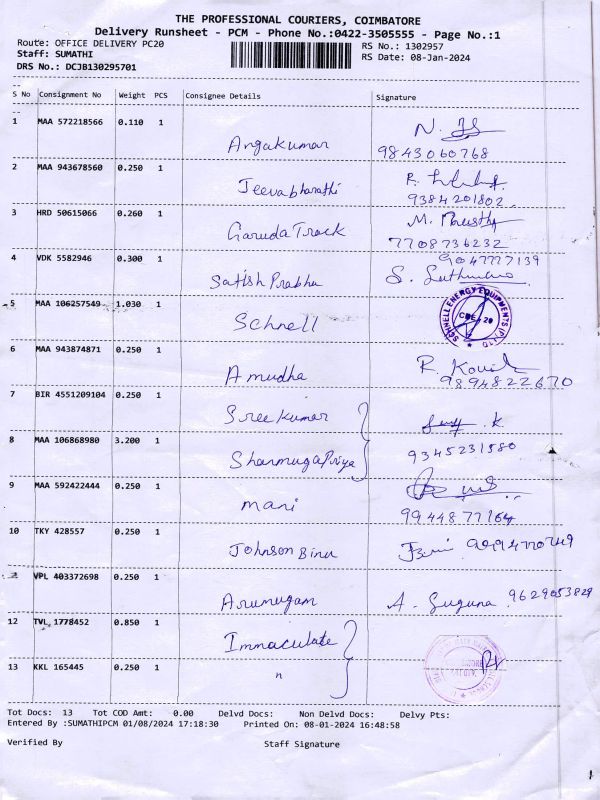 THE PROFESSIONAL COURIERS, COIMBATORE
Delivery Runsheet - PCM - Phone No.:0422-3505555 - Page No.:1
Route: OFFICE DELIVERY PC20
RS No.: 1302957
Staff: SUMATHI
RS Date: 08-Jan-2024
DRS No.: DCJB130295701
S No Consignment No Weight PCS Consignee Details Signature
1 MAA 572218566 0.110 1
Angakumar 9843060768
2 MAA 943678560 0.250 1
Jeevabharathi 9384201802
3 HRD 50615066 0.260 1
Garuda Track 7708736232
4 VDK 5582946 0.300 1 9047777139
Satish Prabha
5 MAA 106257549 1.030 1
Schnell SCHNELL ENERGY EQUIPMENTS (P) LTD
6 MAA 943874871 0.250 1
Amudha 9894822670
7 BIR 4551209104 0.250 1
Sreekumar
8 MAA 106868980 3.200 1
ShanmugaPriya 9345231580
9 MAA 592422444 0.250 1
mani 9944877164
10 TKY 428557 0.250 1
Johnson Binu
VPL 403372698 0.250 1
Arumugam A. Suguna 9629053829
12 TVL 1778452 0.850 1
Immaculate
13 KKL 165445 0.250 1
"
Tot Docs: 13 Tot COD Amt: 0.00 Delvd Docs: Non Delvd Docs: Delvy Pts:
Entered By :SUMATHIPCM 01/08/2024 17:18:30 Printed On: 08-01-2024 16:48:58
Verified By Staff Signature